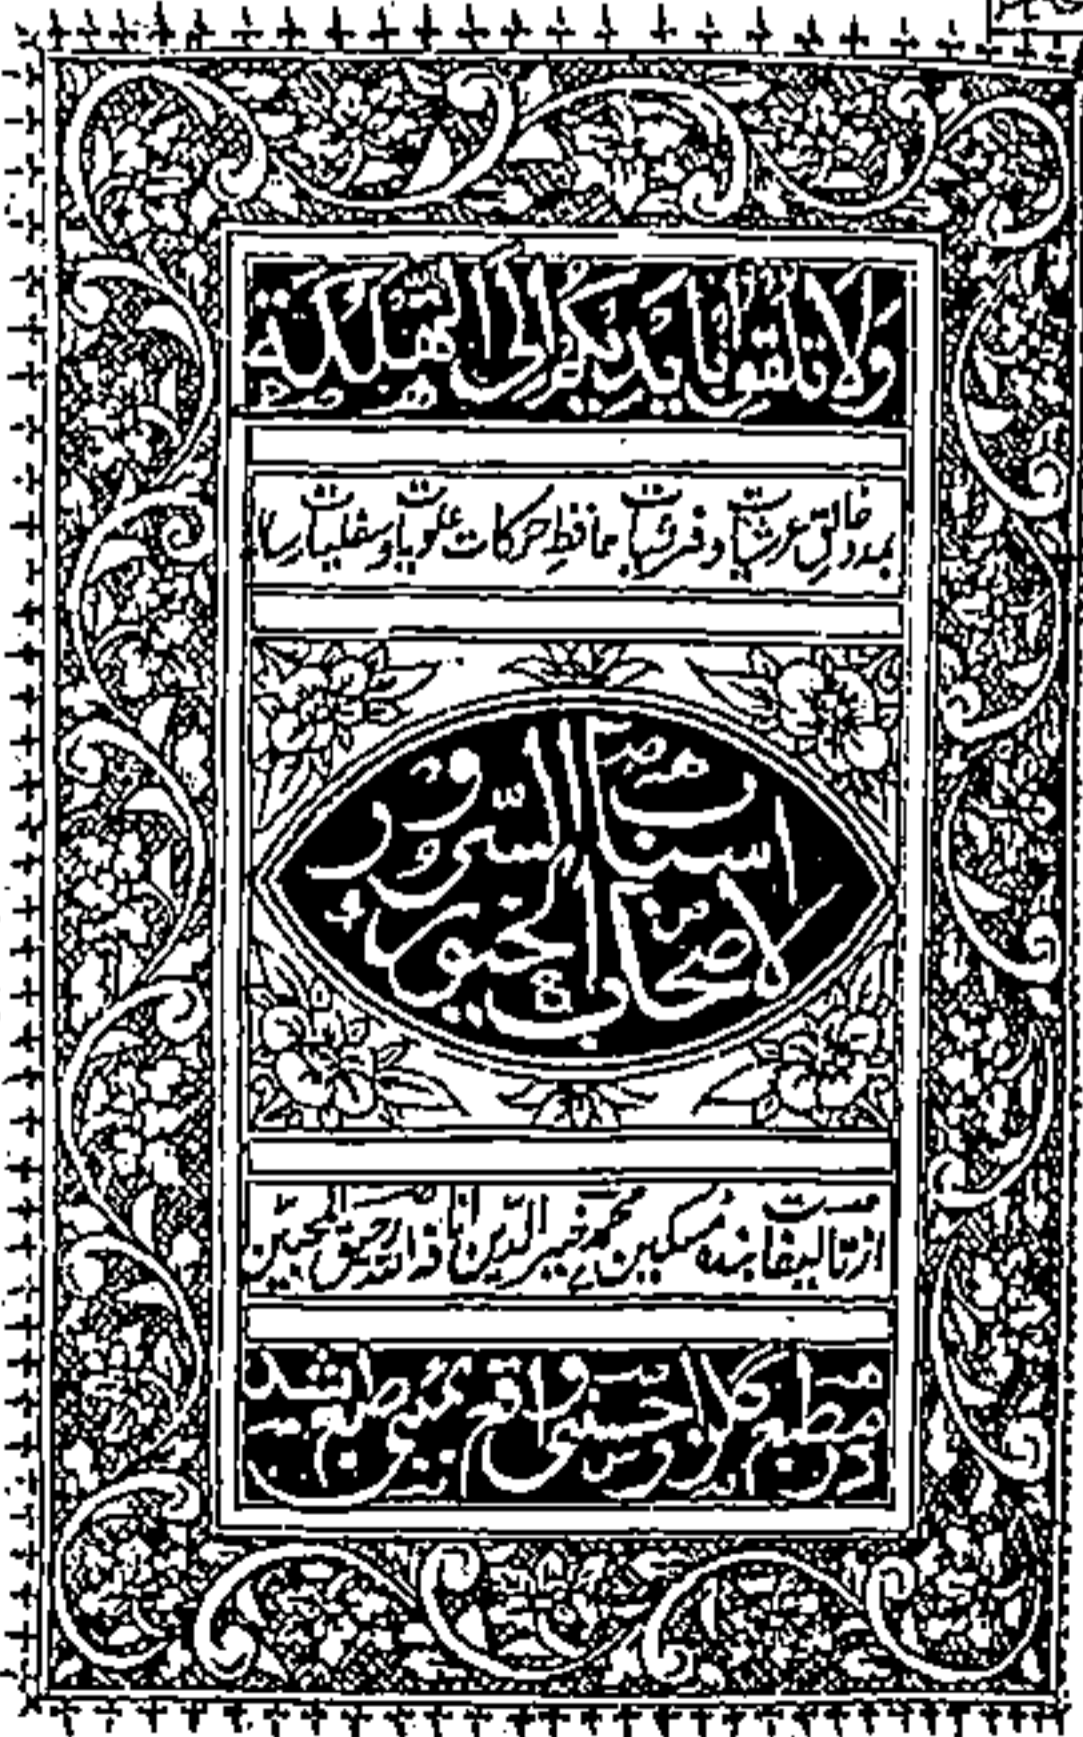 وَلَا تُلْقُوا بِأَيْدِيكُمْ إِلَى التَّهْلُكَةِ
بمدد خالق عرشیات و فرشیات محافظ حرکات علویات و سفلیات رساله
اسباب السرور
لاصحاب الخیور
از تالیفات بنده مسکین محمد خیر الدین انا ذالله حق الیقین
در مطبع گلزار حسنی واقع بمبئی طبع شد